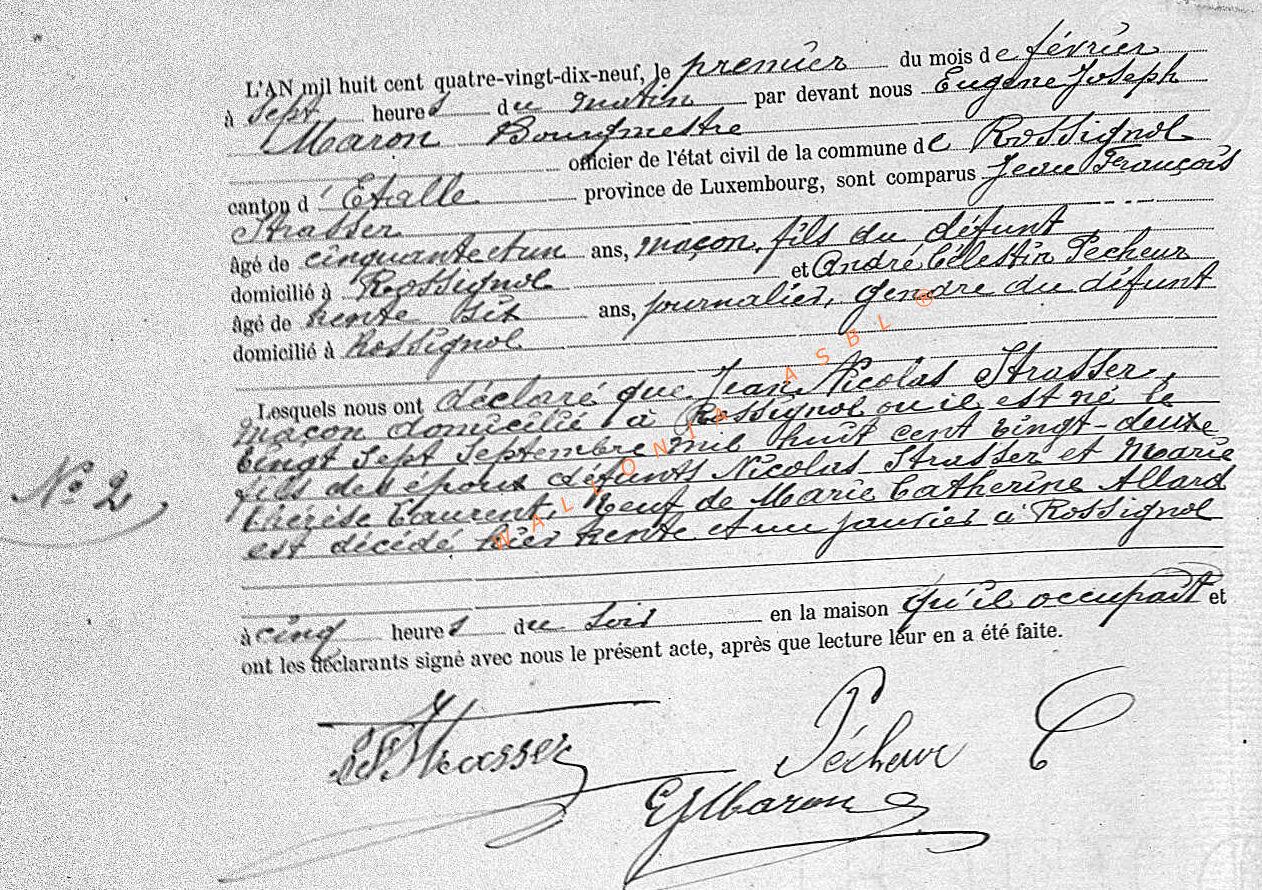 L'AN mil huit cent quatre-vingt-dix-neuf, le premier du mois de février
à sept heures du matin par devant nous Eugène Joseph
Maron Bourgmestre
officier de l'état civil de la commune de Rossignol
canton d'Etalle province de Luxembourg, sont comparus Jean François
Strasser
âgé de cinquante et un ans, maçon, fils du défunt
domicilié à Rossignol et André Célestin Pecheur
âgé de trente six ans, journalier, gendre du défunt
domicilié à Rossignol
Lesquels nous ont déclaré que Jean Nicolas Strasser,
maçon domicilié à Rossignol où il est né le
vingt sept septembre mil huit cent vingt-deux
fils des époux défunts Nicolas Strasser et Marie
thérèse Laurent, veuf de Marie Catherine Allard
est décédé hier trente et un janvier à Rossignol
à cinq heures du soir en la maison qu'il occupait et
ont les déclarants signé avec nous le présent acte, après que lecture leur en a été faite.
No 2
Strasser Pécheur C
EJMaron
WALLONIA ASBL ®